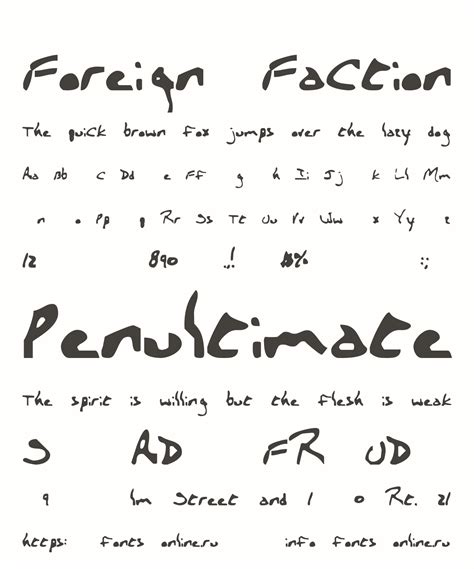 Foreign Faction
The quick brown fox jumps over the lazy dog
Aa Bb c Dd e Ff g h Ii Jj k Ll Mm
n o Pp q Rr Ss Tt Uu Vv Ww x Yy z
12 890 .,! $% :;
Penultimate
The spirit is willing but the flesh is weak
S AD FR UD
9 lm Street and 1 0 Rt. 21
https: fonts online.ru info fonts online.ru